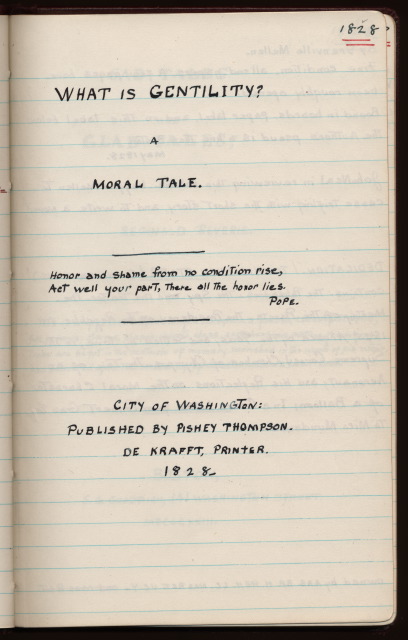 1828
WHAT IS GENTILITY?
A
MORAL TALE.
Honor and shame from no condition rise,
Act well your part, There all the honor lies.
POPE.
CITY OF WASHINGTON:
PUBLISHED BY PISHEY THOMPSON.
DE KRAFFT, PRINTER.
1828